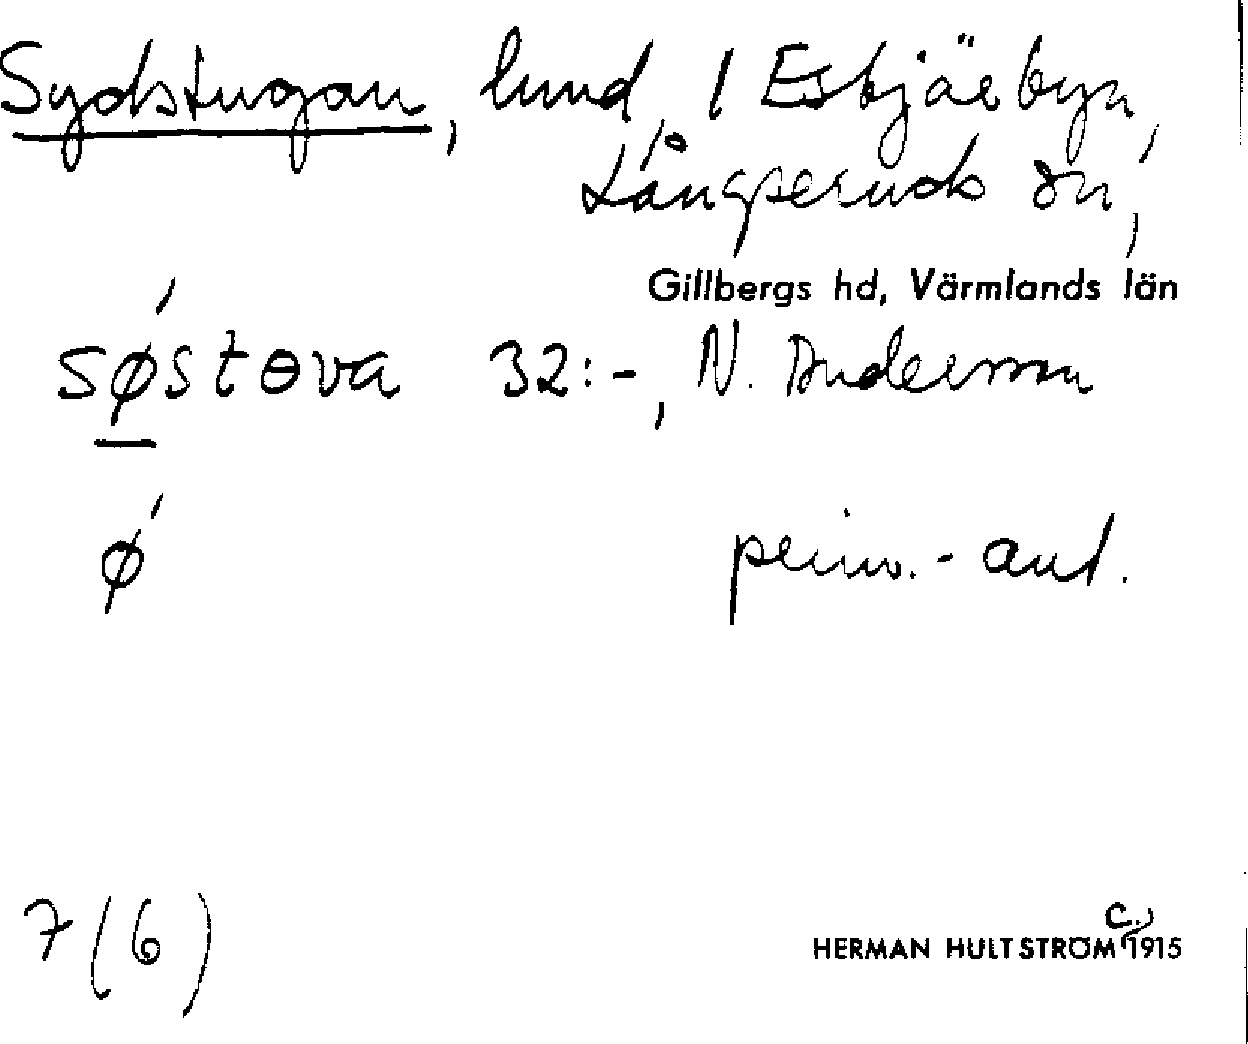 Sydstugan, lund, 1 Eskjärbyn,
Långseruds sn,
Gillbergs hd, Värmlands län
søstɵva 32:-, N. Anderson
ø prim.-ant.
7(6)
HERMAN HULTSTRÖM C. 1915